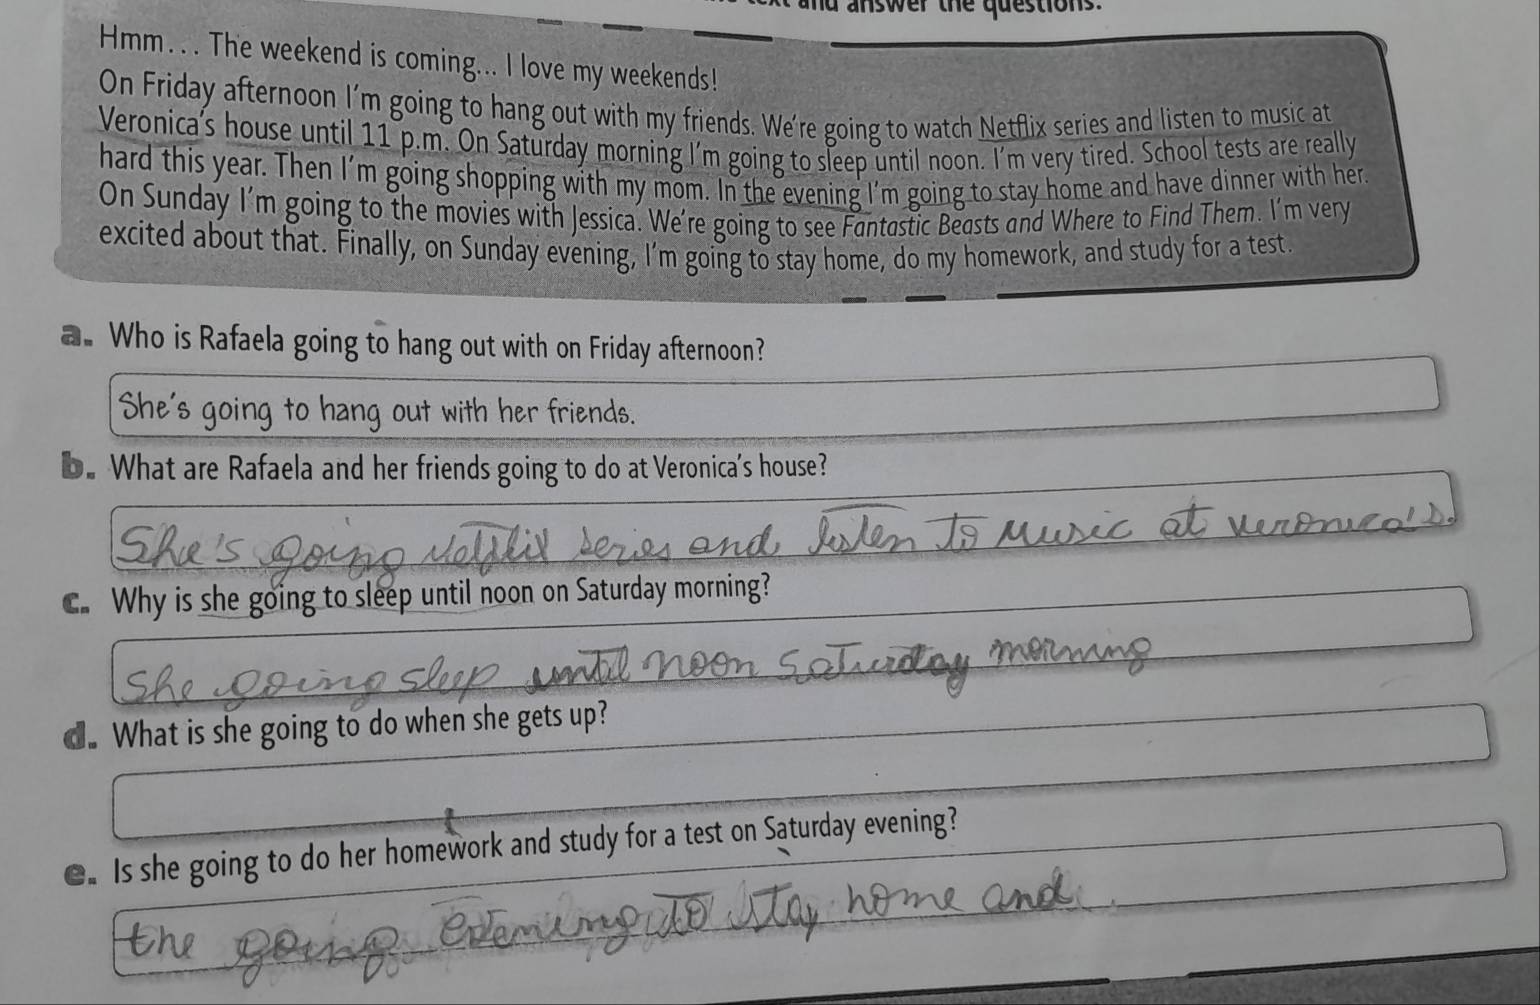 and answer the questions.
Hmm... The weekend is coming... I love my weekends!
On Friday afternoon I'm going to hang out with my friends. We're going to watch Netflix series and listen to music at
Veronica's house until 11 p.m. On Saturday morning I'm going to sleep until noon. I'm very tired. School tests are really
hard this year. Then I'm going shopping with my mom. In the evening I'm going to stay home and have dinner with her.
On Sunday I'm going to the movies with Jessica. We're going to see Fantastic Beasts and Where to Find Them. I'm very
excited about that. Finally, on Sunday evening, I'm going to stay home, do my homework, and study for a test.
a. Who is Rafaela going to hang out with on Friday afternoon?
She's going to hang out with her friends.
b. What are Rafaela and her friends going to do at Veronica's house?
She's going Netflix series and listen to music at veronica's.
c. Why is she going to sleep until noon on Saturday morning?
She going sleep until noon Saturday morning
d. What is she going to do when she gets up?
e. Is she going to do her homework and study for a test on Saturday evening?
the going evening to stay home and